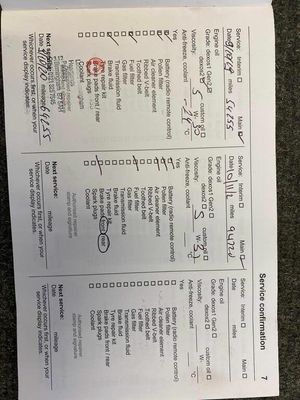 Service confirmation 7
Service: Interim Main
Date miles 54255
Engine oil
Grade: dexos1 Gen2
Viscosity: dexos2 custom oil
5 W- 30
Anti-freeze, coolant °C
Yes
Battery (radio remote control)
Pollen filter
Air cleaner element
Ribbed V-belt
Toothed belt
Fuel filter
Transmission fluid
Brake fluid
Tyre repair kit
Brake pads front / rear
Spark plugs
Coolant
Next service:
Date mileage 64255
Whichever occurs first, or when your
service display indicates.
Service: Interim Main
Date miles
Engine oil
Grade: dexos1 Gen2
Viscosity: dexos2 custom oil
5 W- 30
Anti-freeze, coolant °C
Yes
Battery (radio remote control)
Pollen filter
Air cleaner element
Ribbed V-belt
Toothed belt
Fuel filter
Transmission fluid
Brake fluid
Tyre repair kit
Brake pads front / rear
Spark plugs
Coolant
Authorised repairer
stamp and signature
Next service:
Date mileage
Whichever occurs first, or when your
service display indicates.
Service: Interim Main
Date miles
Engine oil
Grade: dexos1 Gen2
Viscosity: dexos2 custom oil
W-
Anti-freeze, coolant °C
Yes
Battery (radio remote control)
Pollen filter
Air cleaner element
Ribbed V-belt
Toothed belt
Fuel filter
Transmission fluid
Brake fluid
Tyre repair kit
Brake pads front / rear
Spark plugs
Coolant
Authorised repairer
stamp and signature
Next service:
Date mileage
Whichever occurs first, or when your
service display indicates.